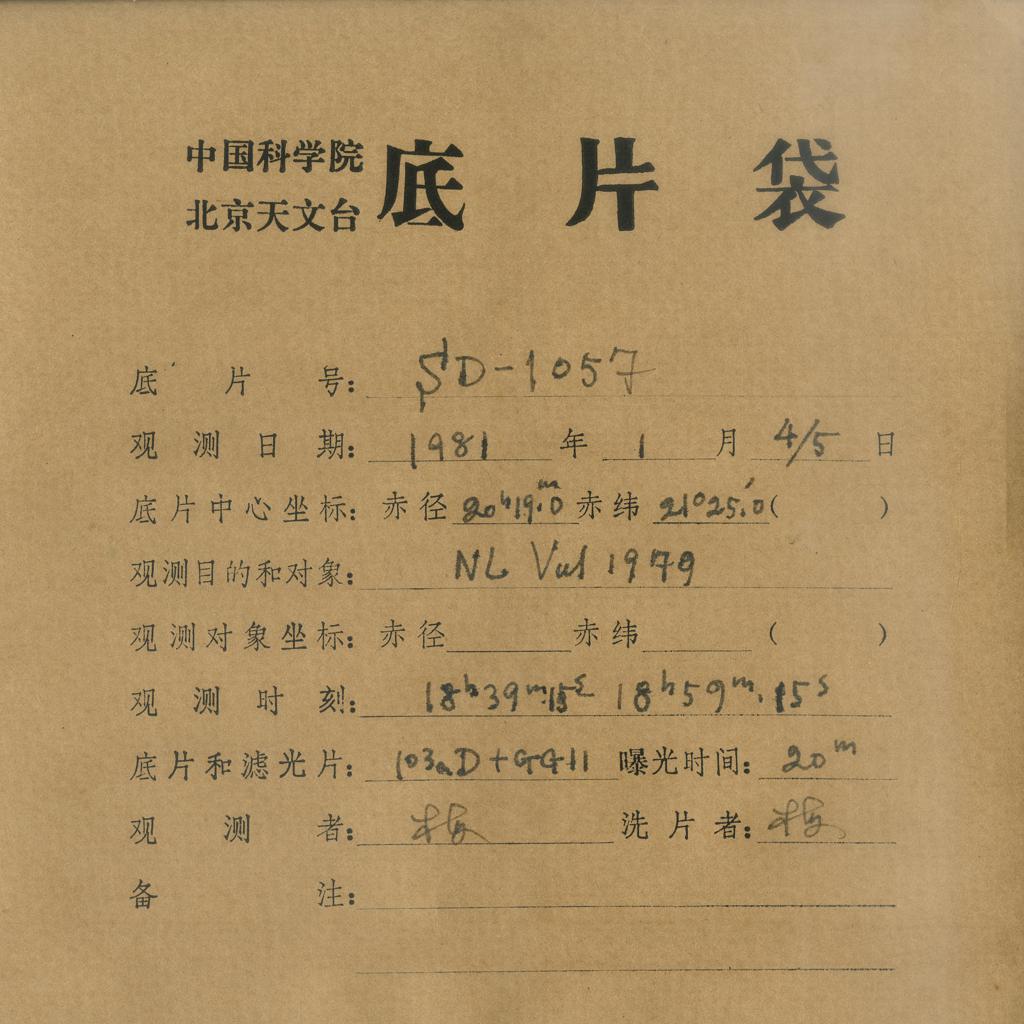 中国科学院
北京天文台
底片袋
底片号: SD-1057
观测日期: 1981 年 1 月 4/5 日
底片中心坐标: 赤径 20ʰ19ᵐ.0 赤纬 21°25'.0 ( )
观测目的和对象: NL Vul 1979
观测对象坐标: 赤径 赤纬 ( )
观测时刻: 18ʰ39ᵐ.15ˢ 18ʰ59ᵐ.15ˢ
底片和滤光片: 103aD+GG11 曝光时间: 20ᵐ
观测者: 梅 洗片者: 梅
备注: